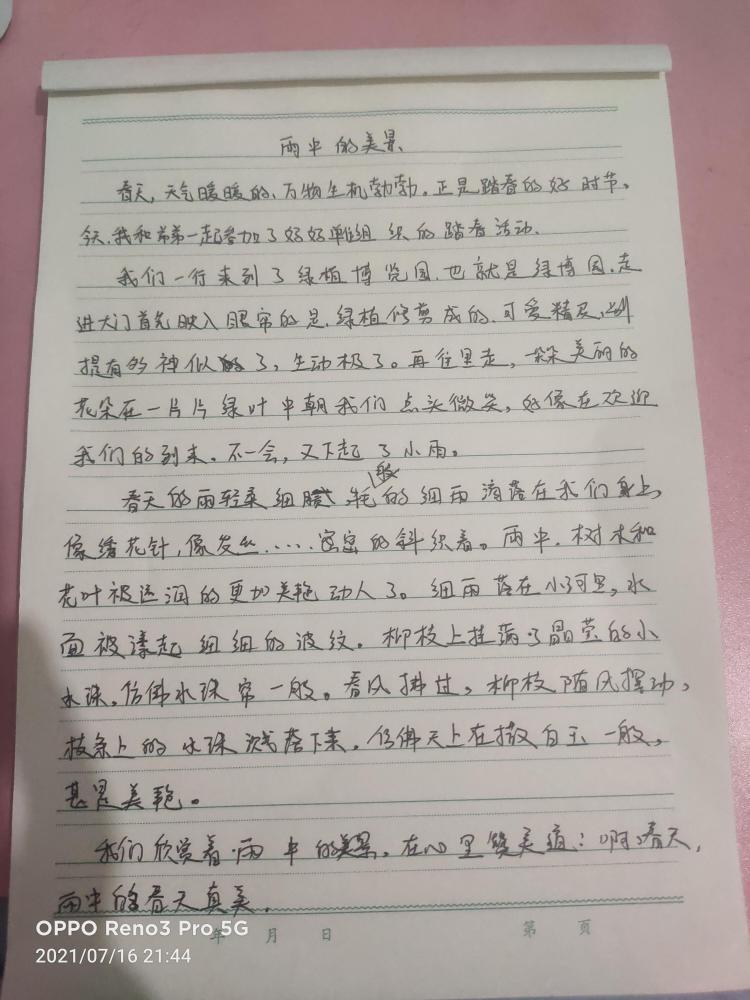 雨中的美景
春天，天气暖暖的，万物生机勃勃。正是踏春的好时节。
今天，我和弟弟一起参加了好好单组织的踏春活动。
我们一行来到了绿植博览园，也就是绿博园，走
进大门首先映入眼帘的是，绿植修剪成的，可爱精灵，别
提有多神似了，生动极了。再往里走，一朵朵美丽的
花朵在一片片绿叶中朝我们点头微笑，好像在欢迎
我们的到来。不一会，又下起了小雨。
春天的雨轻柔细腻，牦般的细雨滴落在我们身上，
像绣花针，像发丝……密密的斜织着。雨中，树木和
花叶被滋润的更加美艳动人了。细雨落在小河里，水
面被漾起细细的波纹。柳枝上挂满了晶莹的小
水珠，仿佛水珠帘一般。春风拂过，柳枝随风摆动，
枝条上的水珠溅落下来，仿佛天上在撒白玉一般，
甚是美艳。
我们欣赏着雨中的美景，在心里赞美道：啊，春天，
雨中的春天真美。
年 月 日 第 页
OPPO Reno3 Pro 5G
2021/07/16 21:44